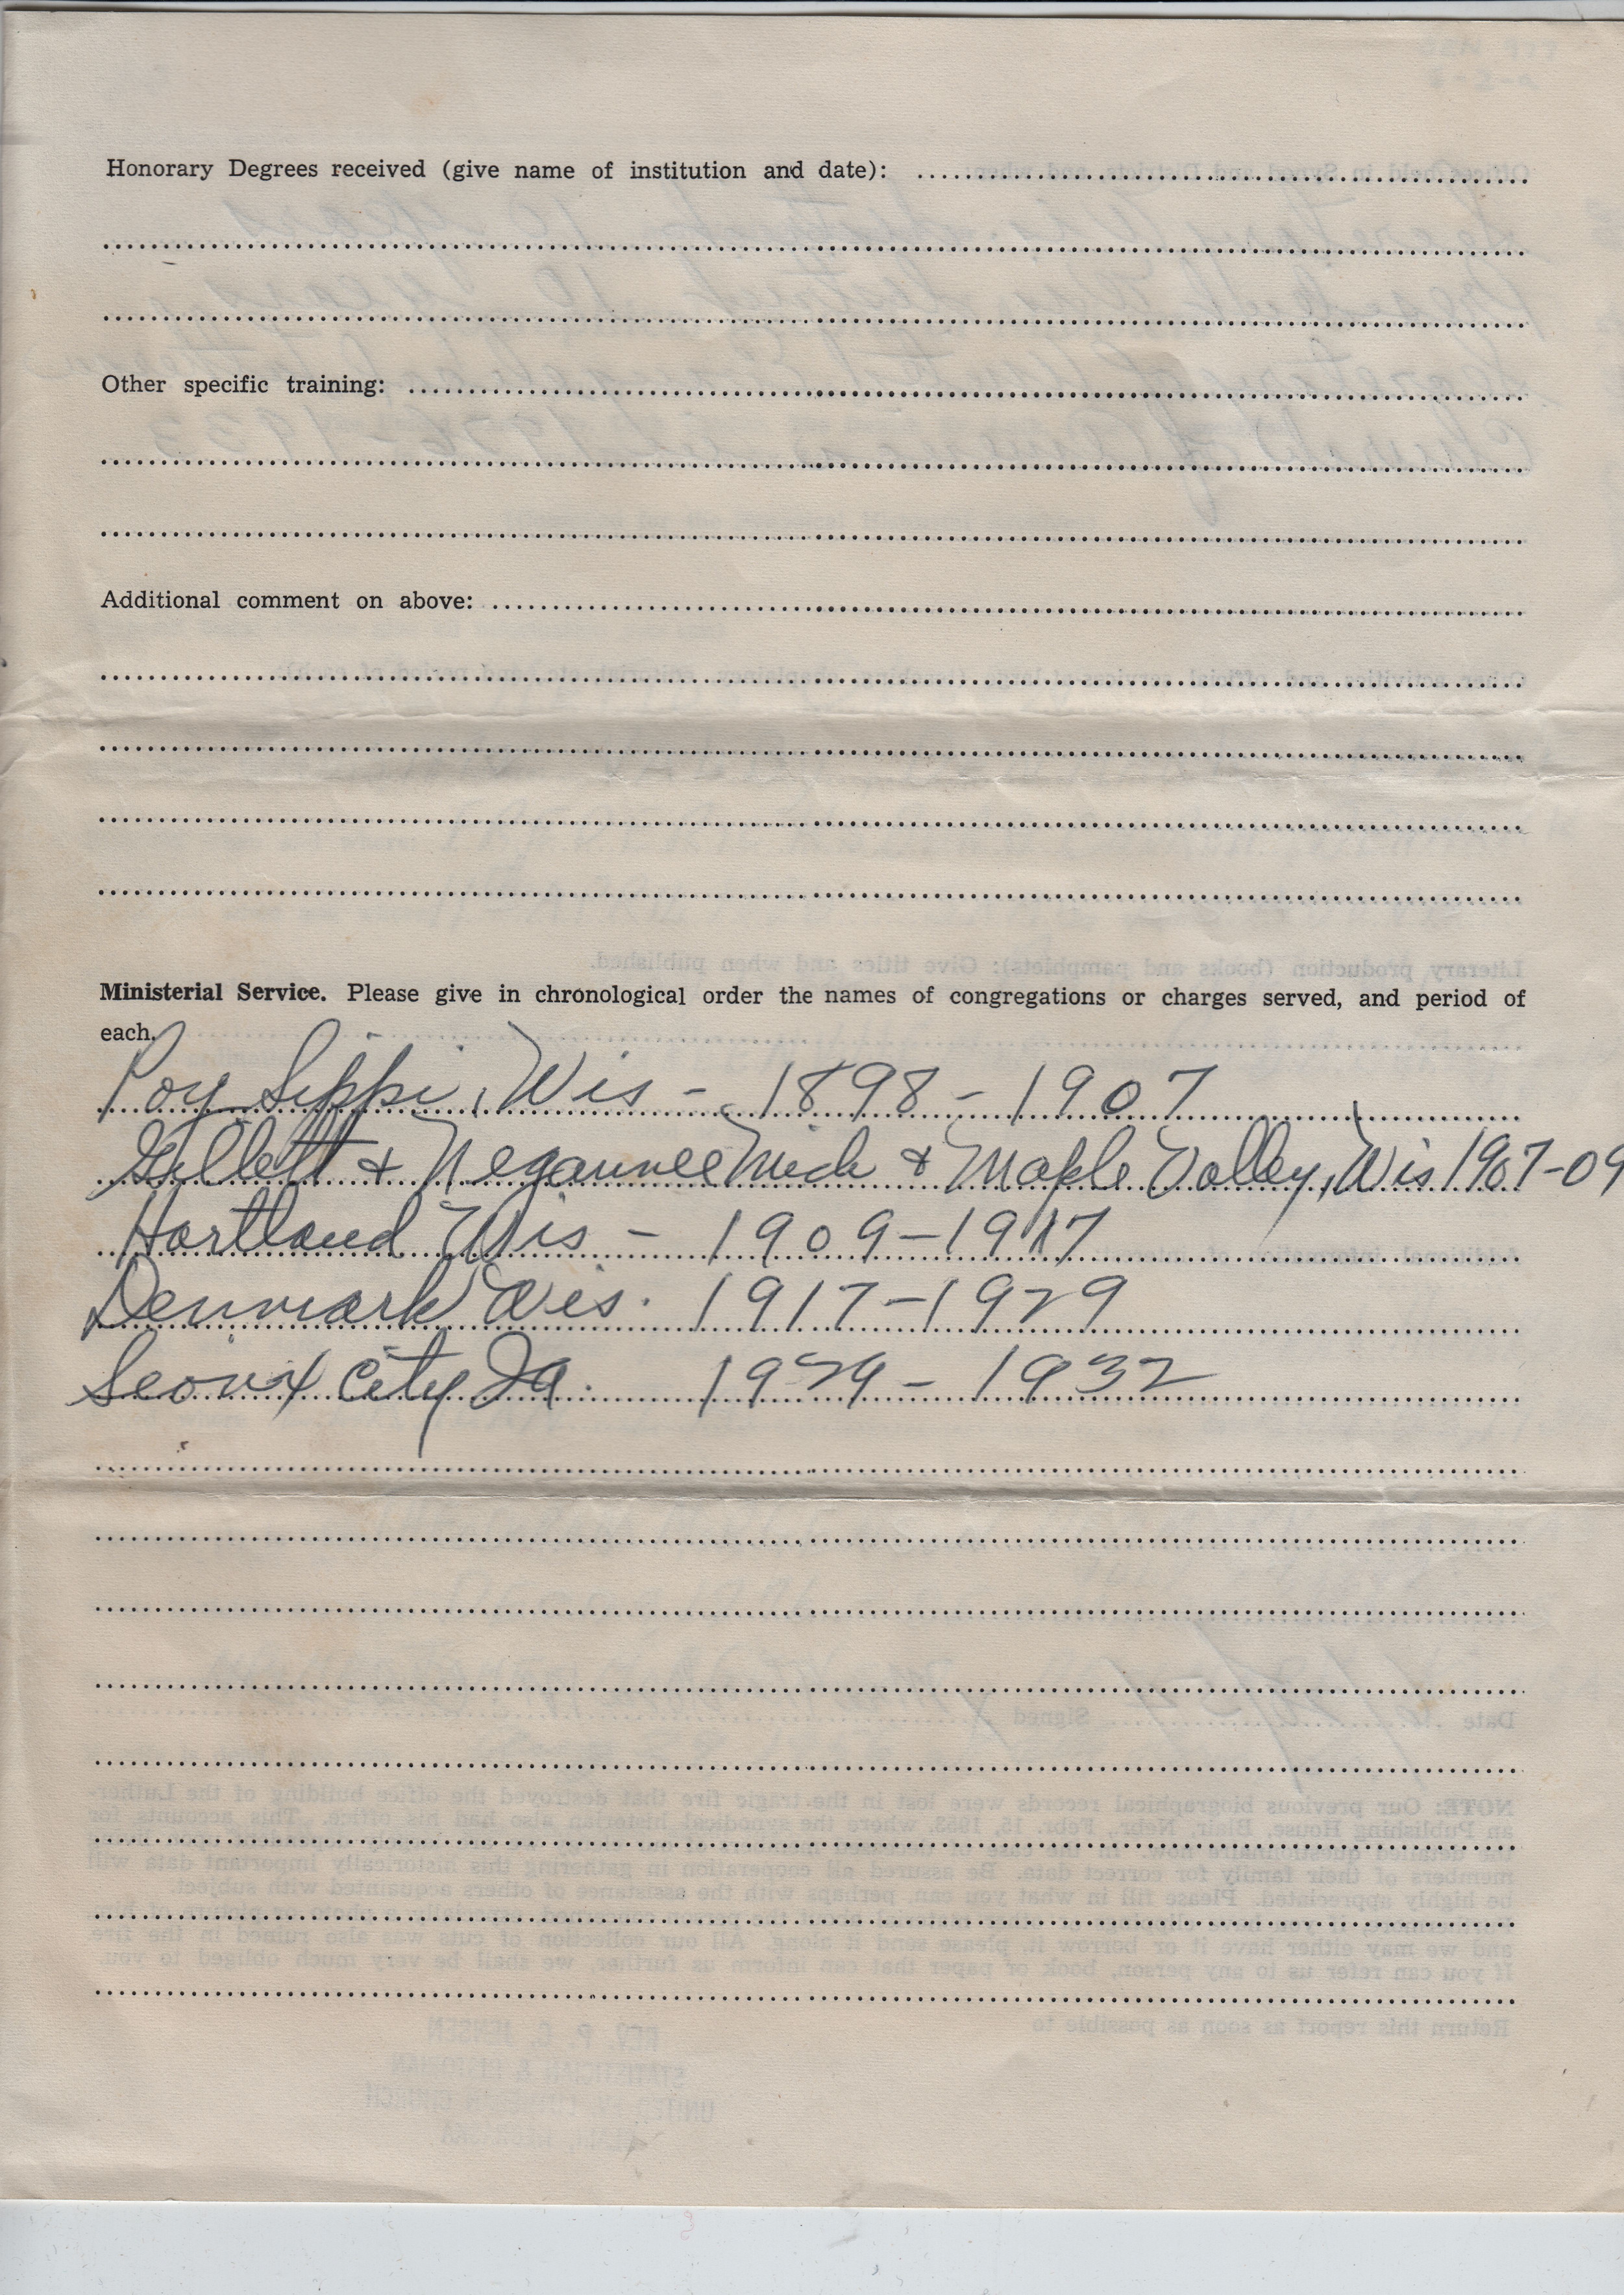 Honorary Degrees received (give name of institution and date):
Other specific training:
Additional comment on above:
Ministerial Service. Please give in chronological order the names of congregations or charges served, and period of
each.
Poy Sippi, Wis - 1898-1907
Gillett & Negaunee Mich & Maple Valley, Wis 1907-09
Hartland Wis - 1909-1917
Denmark Wis. 1917-1929
Seoux City Ia. 1929-1932